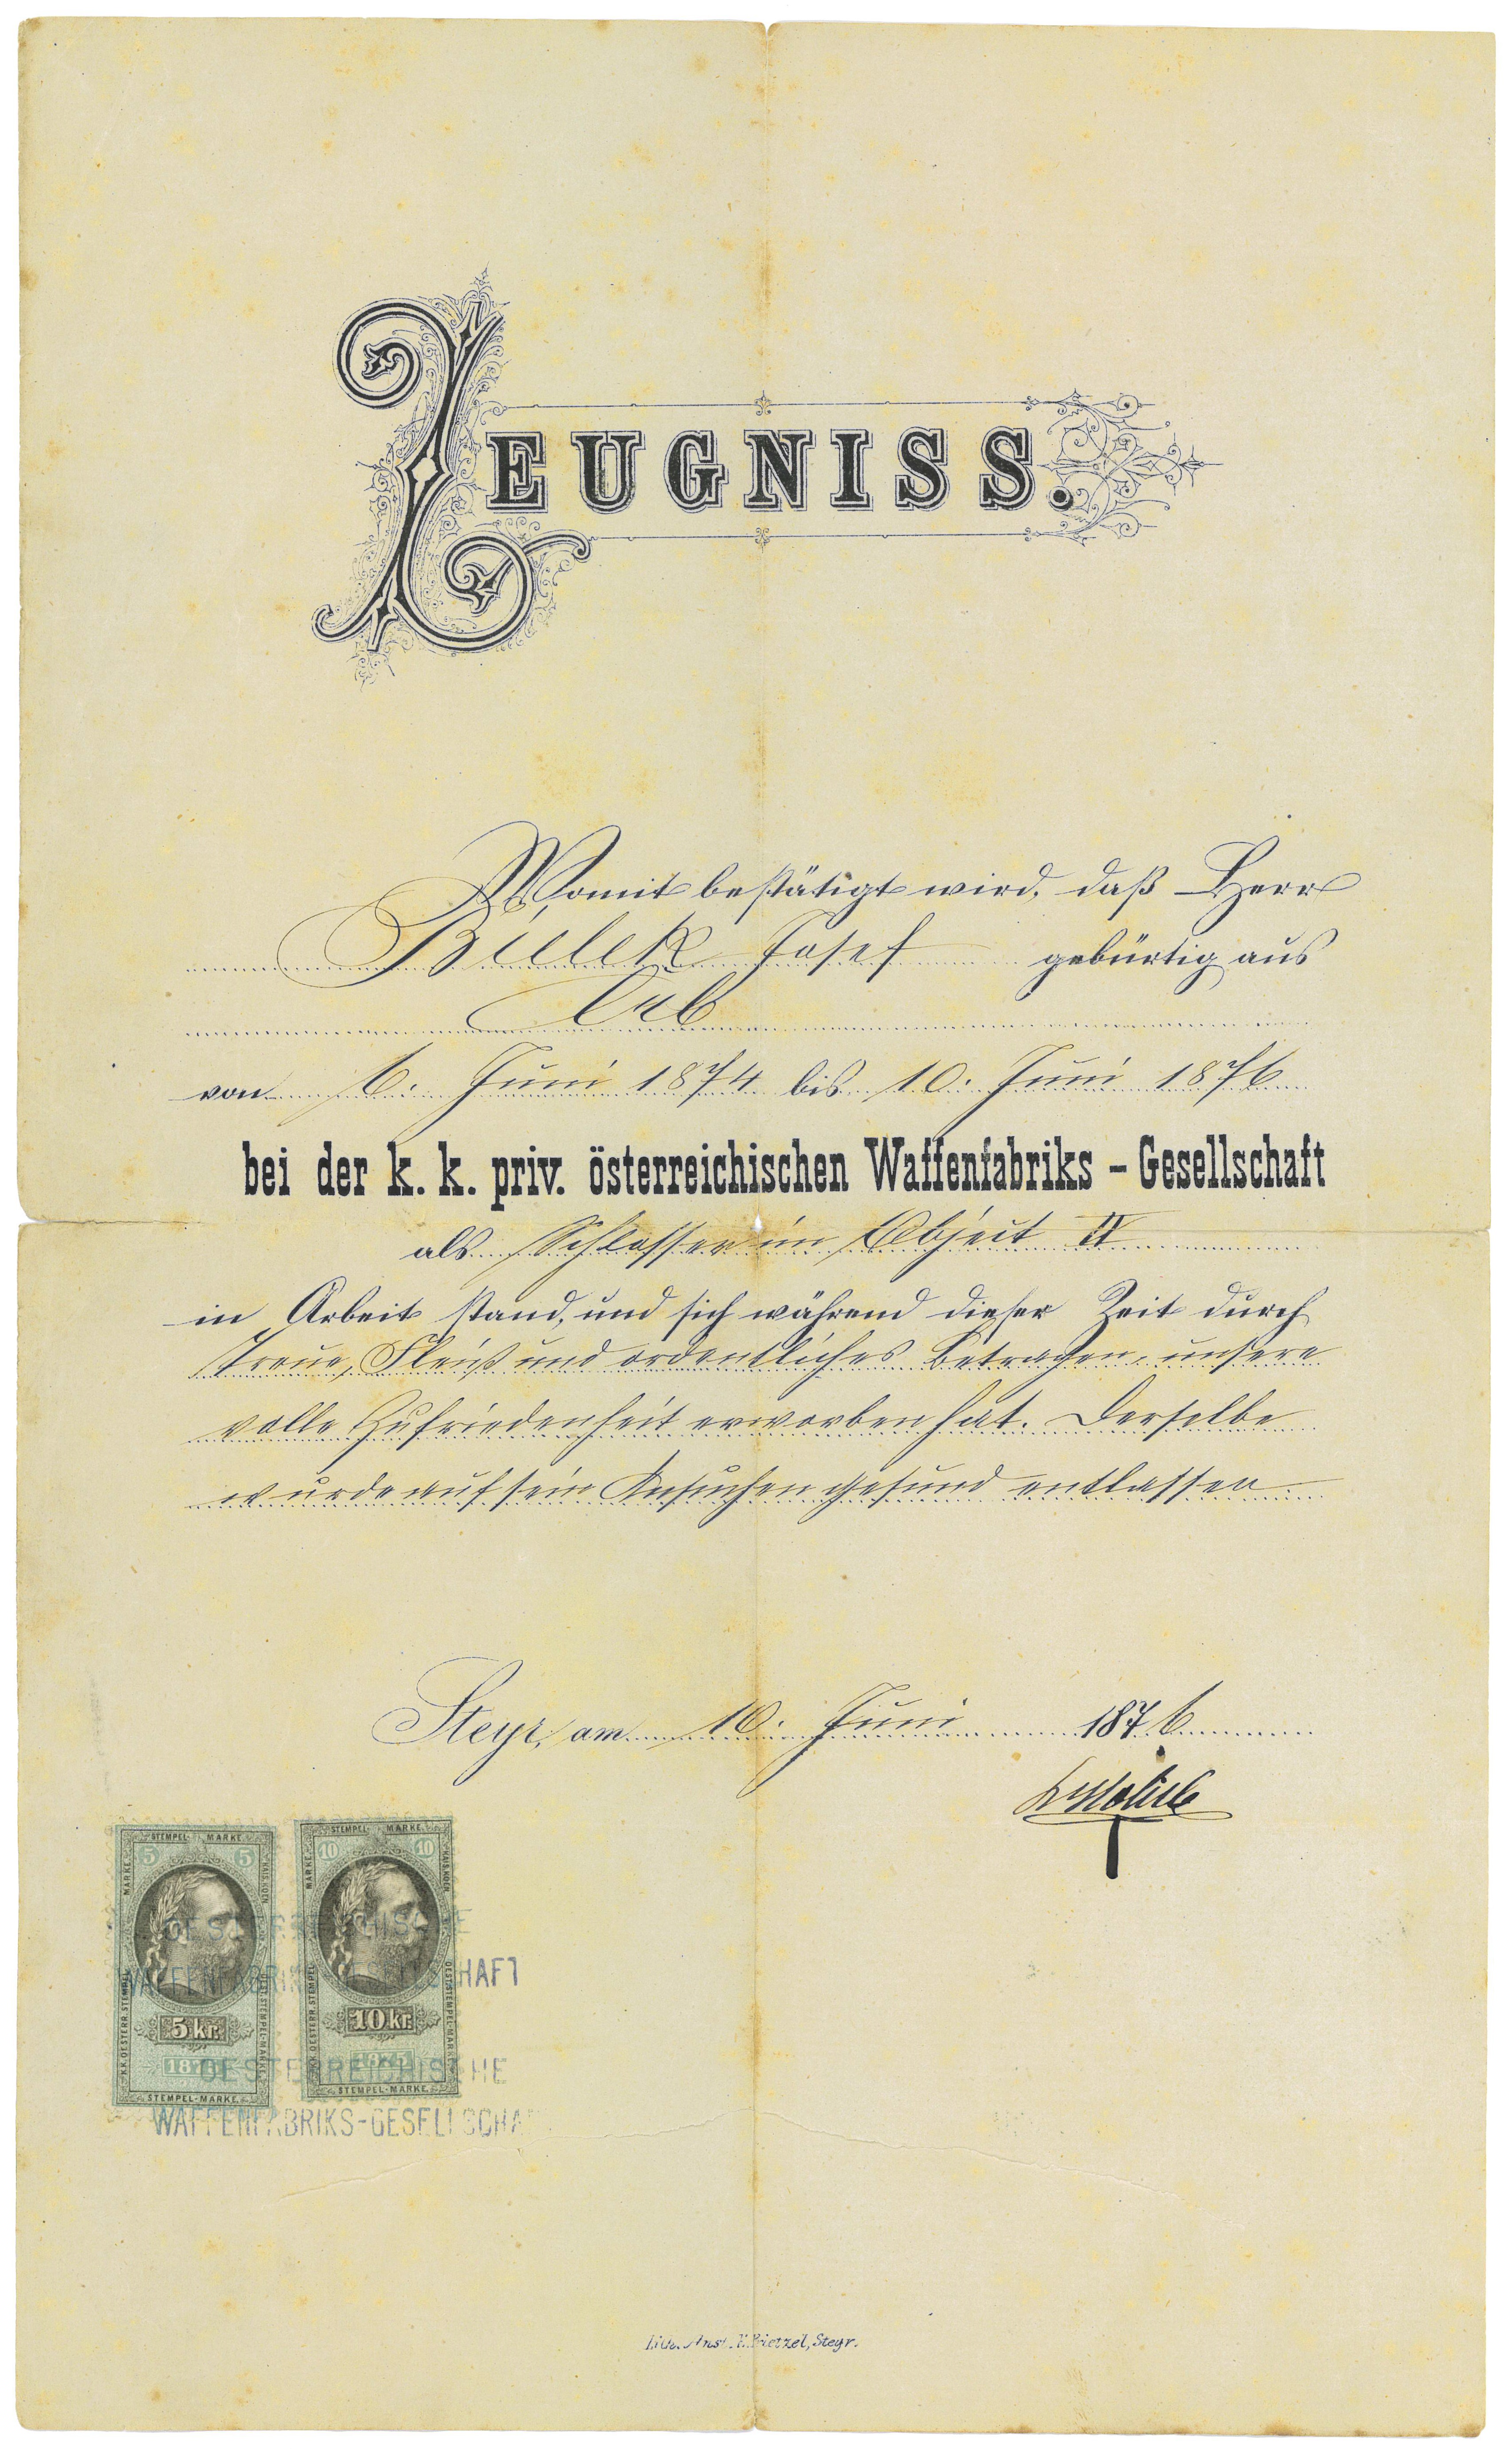 ZEUGNISS.
Womit bestätigt wird, daß Herr
Bilek Josef gebürtig aus
von 6. Juni 1874 bis 10. Juni 1876
bei der k. k. priv. österreichischen Waffenfabriks - Gesellschaft
als Schlosser im Object IV
in Arbeit stand, und sich während dieser Zeit durch
Treue, Fleiß und ordentliches Betragen, unsere
volle Zufriedenheit erworben hat. Derselbe
wurde auf sein Ansuchen gesund entlassen
Steyr, am 10. Juni 1876
STEMPEL-MARKE
5 5
5 kr.
STEMPEL-MARKE
STEMPEL-MARKE
10 10
10 kr.
1875
STEMPEL-MARKE
OESTERREICHISCHE
WAFFENFABRIKS-GESELLSCHAFT
OESTERREICHISCHE
WAFFENFABRIKS-GESELLSCHA
Lith. Anst. Prietzel, Steyr.